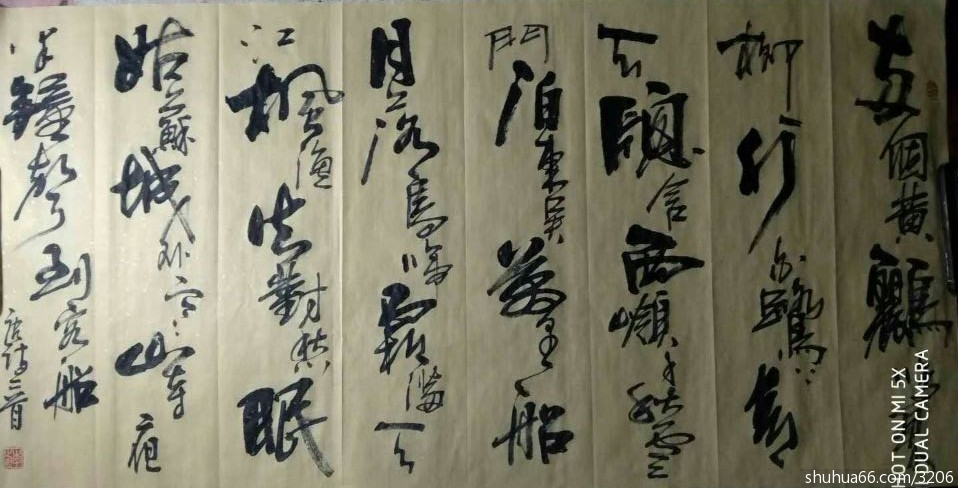 两個黄鸝
柳一行白鷺上青
天窗含西嶺千秋雪
門泊東吴萬里船
月落烏啼霜满天
江枫渔火對愁眠
姑蘇城外寒山寺夜
半鐘聲到客船
唐詩二首
HOT ON MI 5X
DUAL CAMERA
shuhua66.com/3206